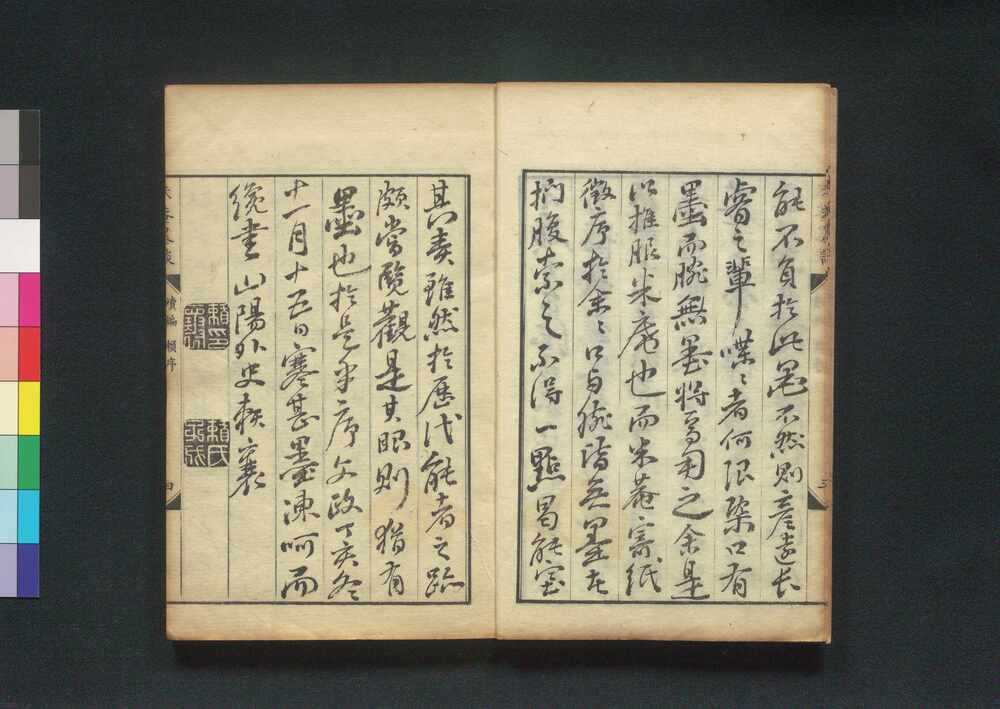 能不負於此墨不然則彥遠長
睿之輩喋〻者何限槩口有
墨而腕無墨將焉用之余是
以推服米庵也而米菴寄紙
徵序於余〻口与腕皆無墨在
捫腹索之不得一點曷能塞
其責雖然於歷代能者之跡
頗嘗覽觀是其眼則猶有
墨也於是乎序文政丁亥冬
十一月十五日寒甚墨凍呵而
纔書 山陽外史賴襄
續編 賴序
四